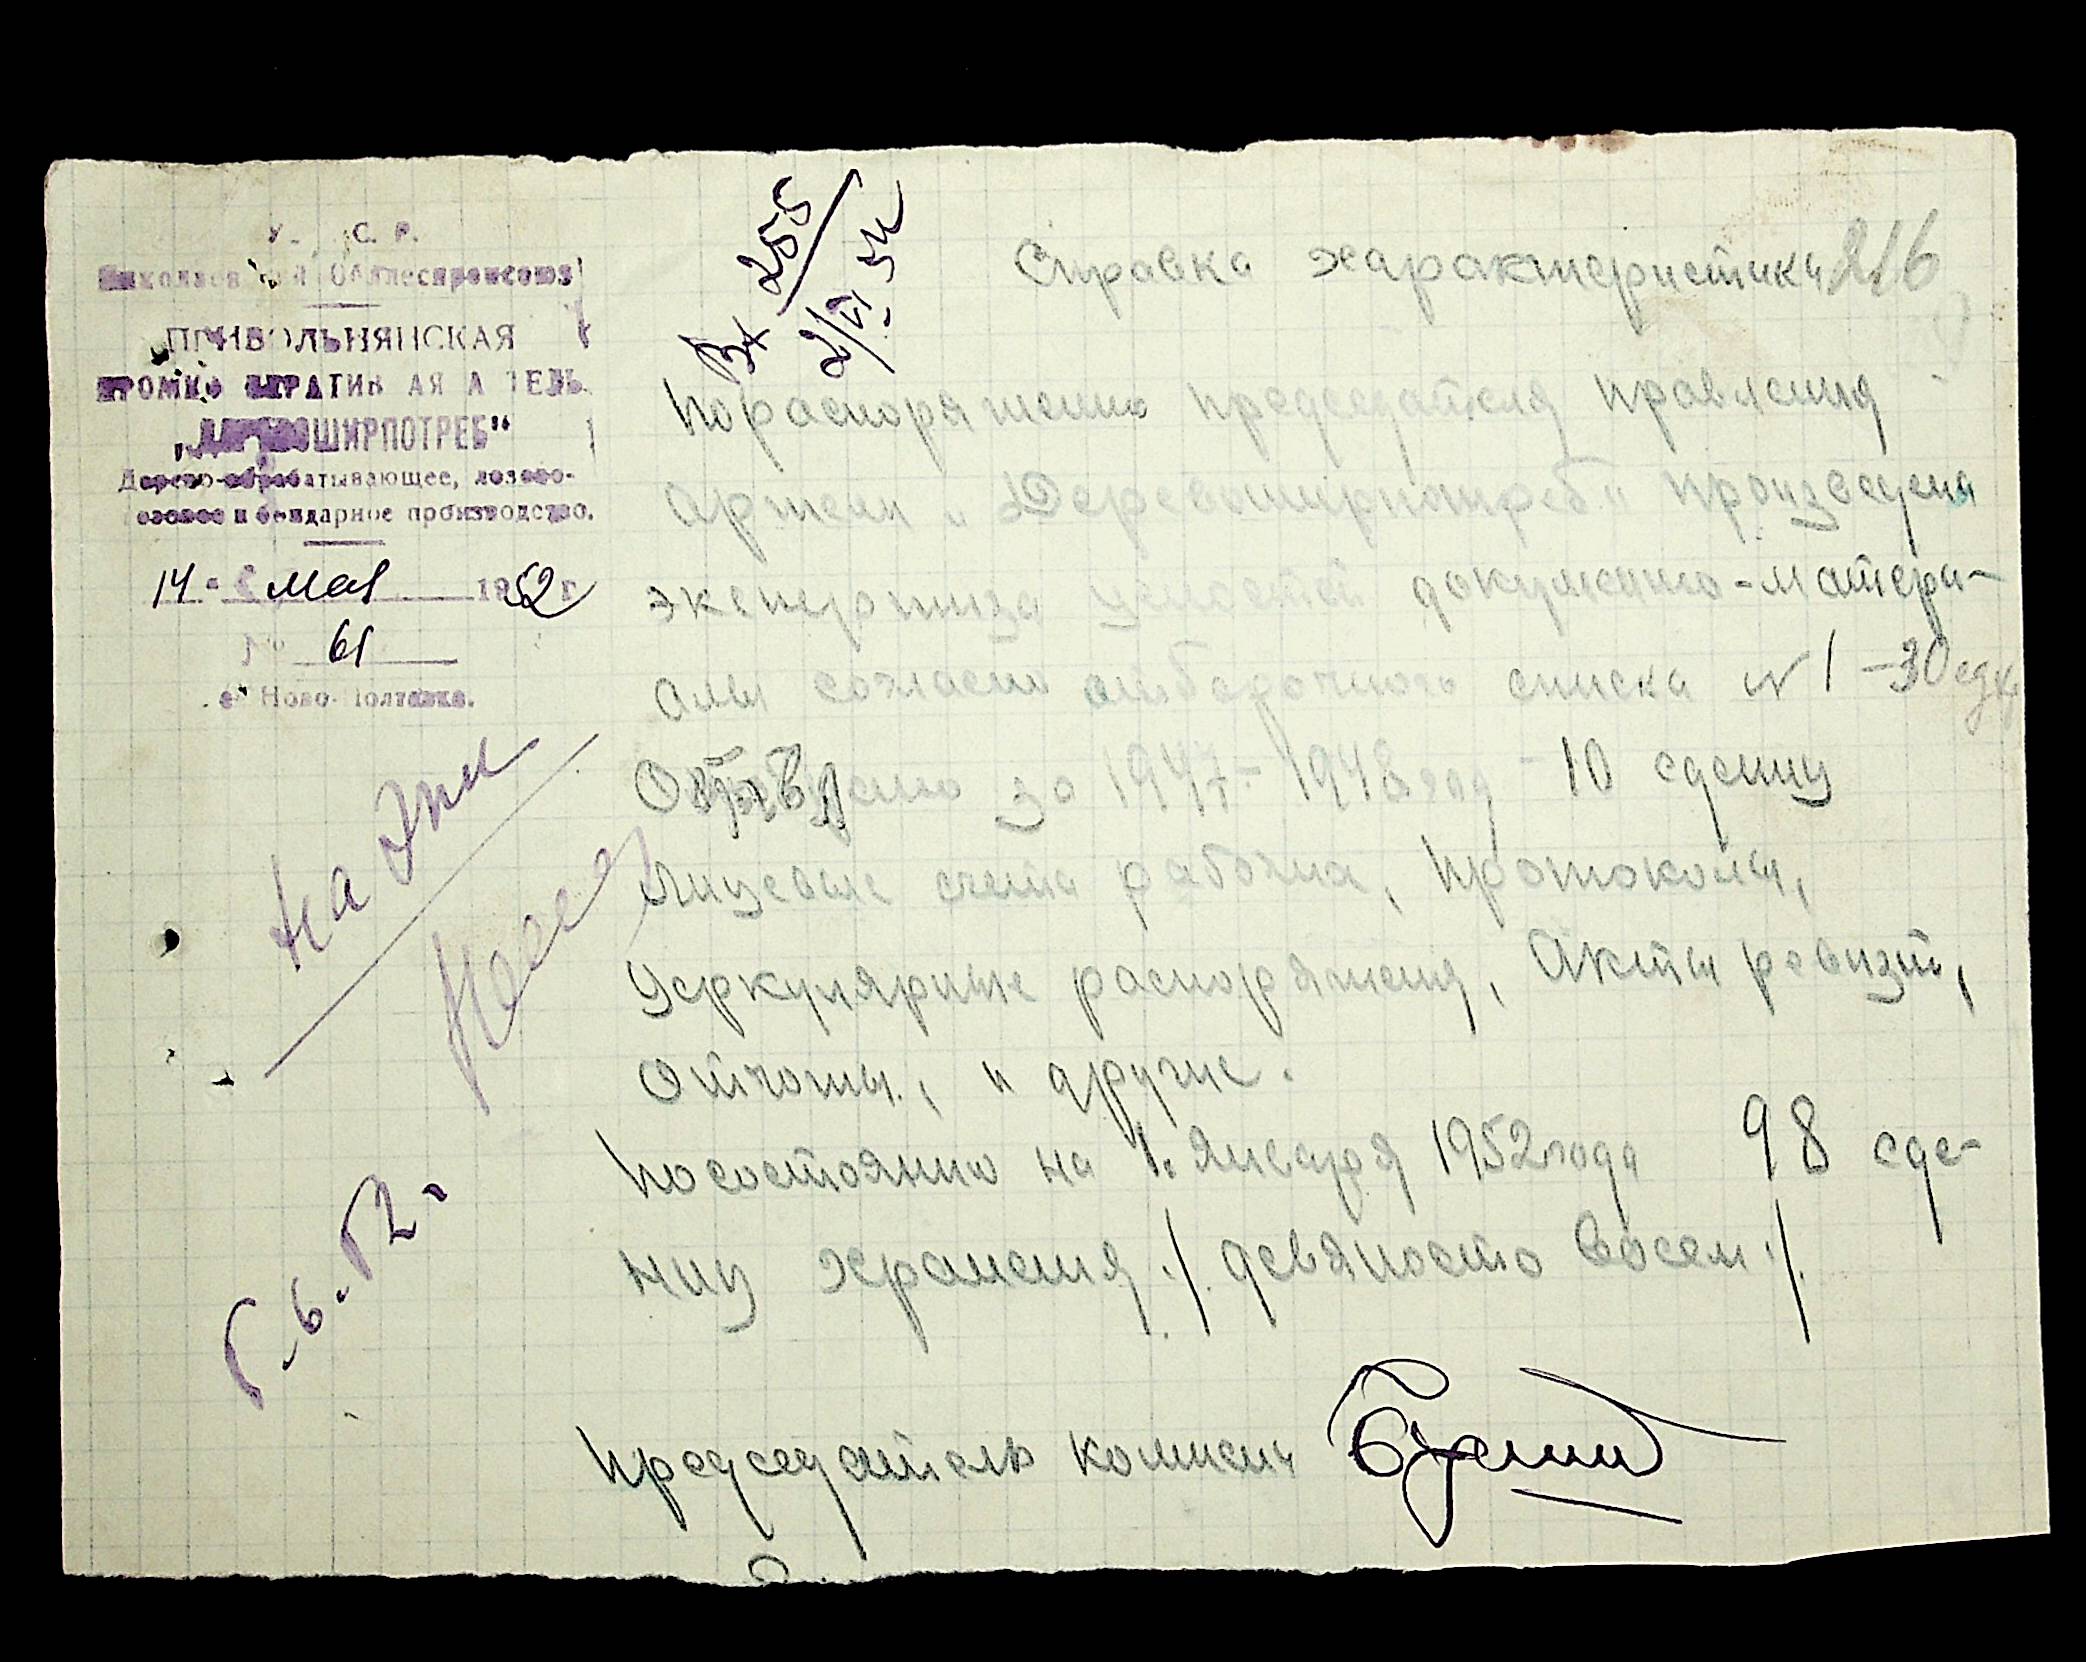 У. С. Р.
Николаевский Обллеспромсоюз
ПРИВОЛЬНЯНСКАЯ
ПРОМКООПЕРАТИВНАЯ АРТЕЛЬ
„ДЕРЕВОШИРПОТРЕБ"
Дерево-обрабатывающее, лозово-
и бондарное производство.
14 " мая 1952 г.
№ 61
с. Ново-Полтавка.
Вх 255
2/VI 52
Справка характеристика 216
По распоряжению председателя правления
артели „Деревоширпотреб" произведена
экспертиза документо-матери-
алы согласно отборочного списка № 1 - 30 едиц
за 1947-1948 год - 10 едениц
Лицевые счета рабочиа, протоколы,
Церкулярные распоряжения, Акты ревизий,
Отчоты, и другие.
По состоянию на 1. Января 1952 года 98 еде-
ниц хранения ./. девяносто восем ./.
Председатель комисии
На
5.6.52.